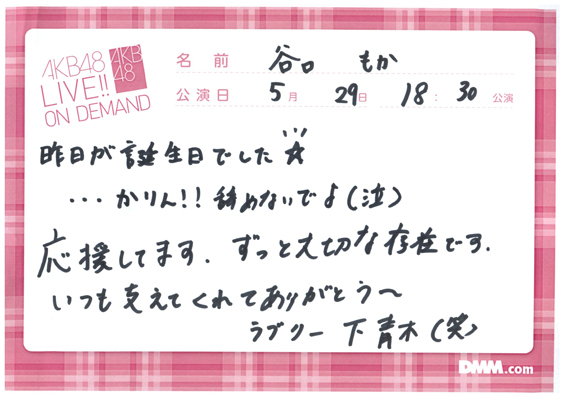 AKB48
LIVE!!
ON DEMAND
AKB
48
名前 谷口 もか
公演日 5月 29日 18:30 公演
昨日が誕生日でした☆
・・・かりん!! 辞めないでよ(泣)
応援してます. ずっと大切な存在です.
いつも支えてくれてありがとう〜
ラブリー 下青木(笑)
DMM.com